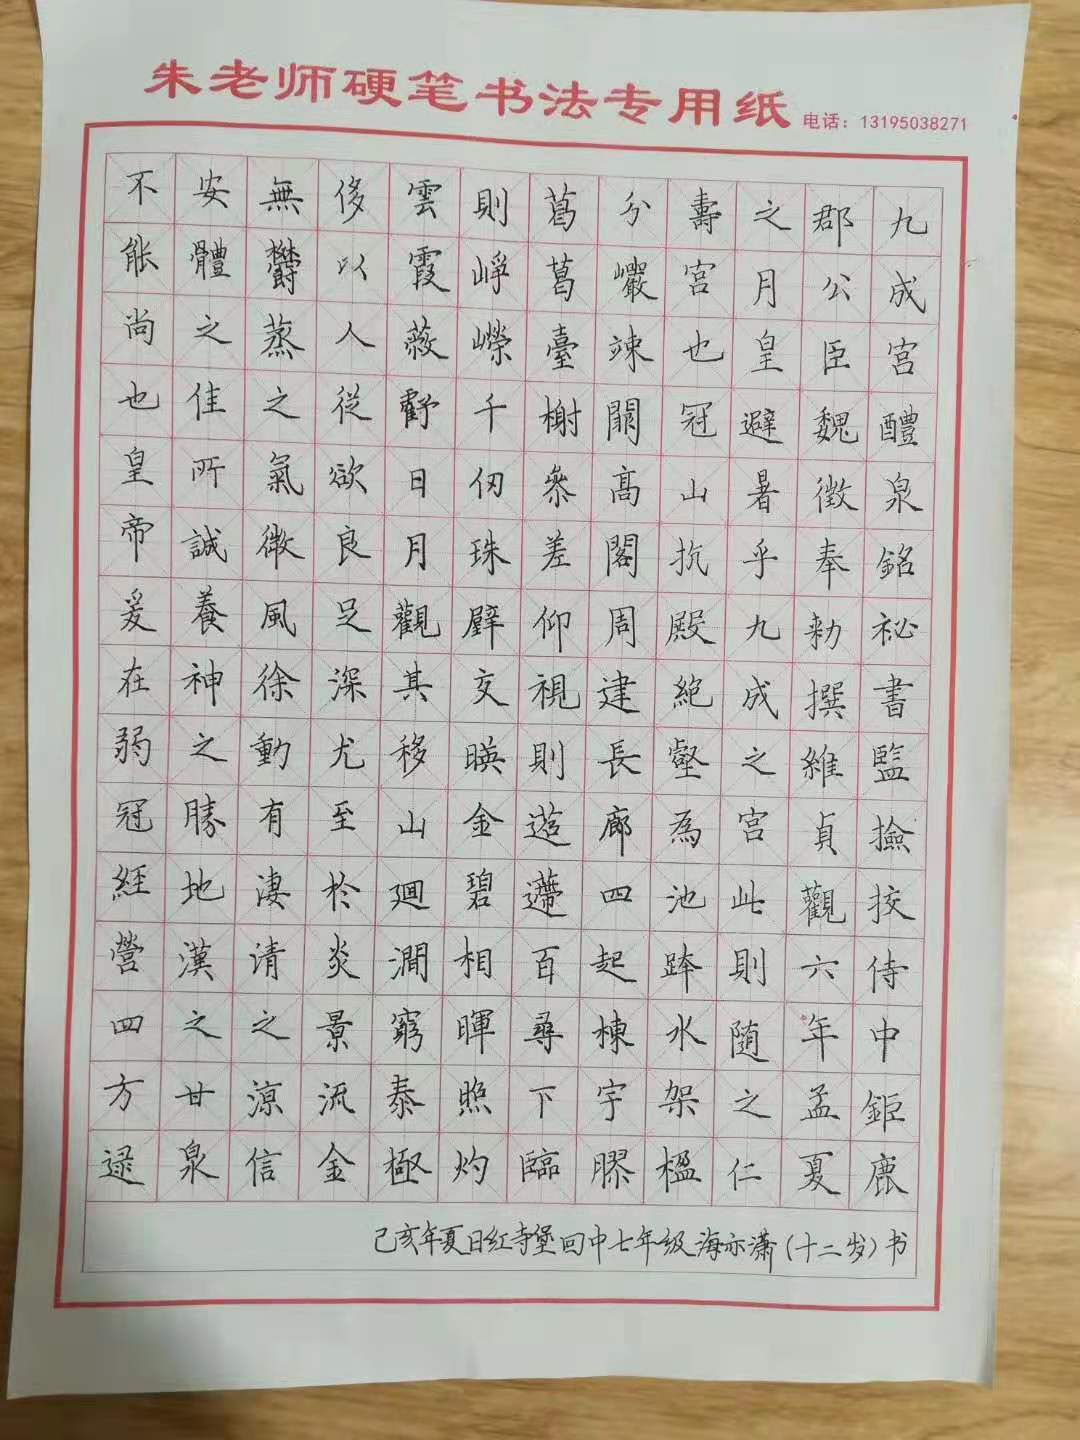 朱老师硬笔书法专用纸
电话：13195038271
九成宮醴泉銘祕書監撿挍侍中鉅鹿
郡公臣魏徵奉勑撰維貞觀六年孟夏
之月皇避暑乎九成之宮此則随之仁
壽宮也冠山抗殿絕壑為池跨水架楹
分巖竦闕高閣周建長廊四起棟宇膠
葛葛臺榭參差仰視則迢遰百尋下臨
則崢嶸千仞珠壁交暎金碧相暉照灼
雲霞蔽虧日月觀其移山廻澗窮泰極
侈以人從欲良足深尤至於炎景流金
無鬱蒸之氣微風徐動有淒清之涼信
安體之佳所誠養神之勝地漢之甘泉
不能尚也皇帝爰在弱冠經營四方逯
己亥年夏日红寺堡回中七年级海亦潇(十二岁)书